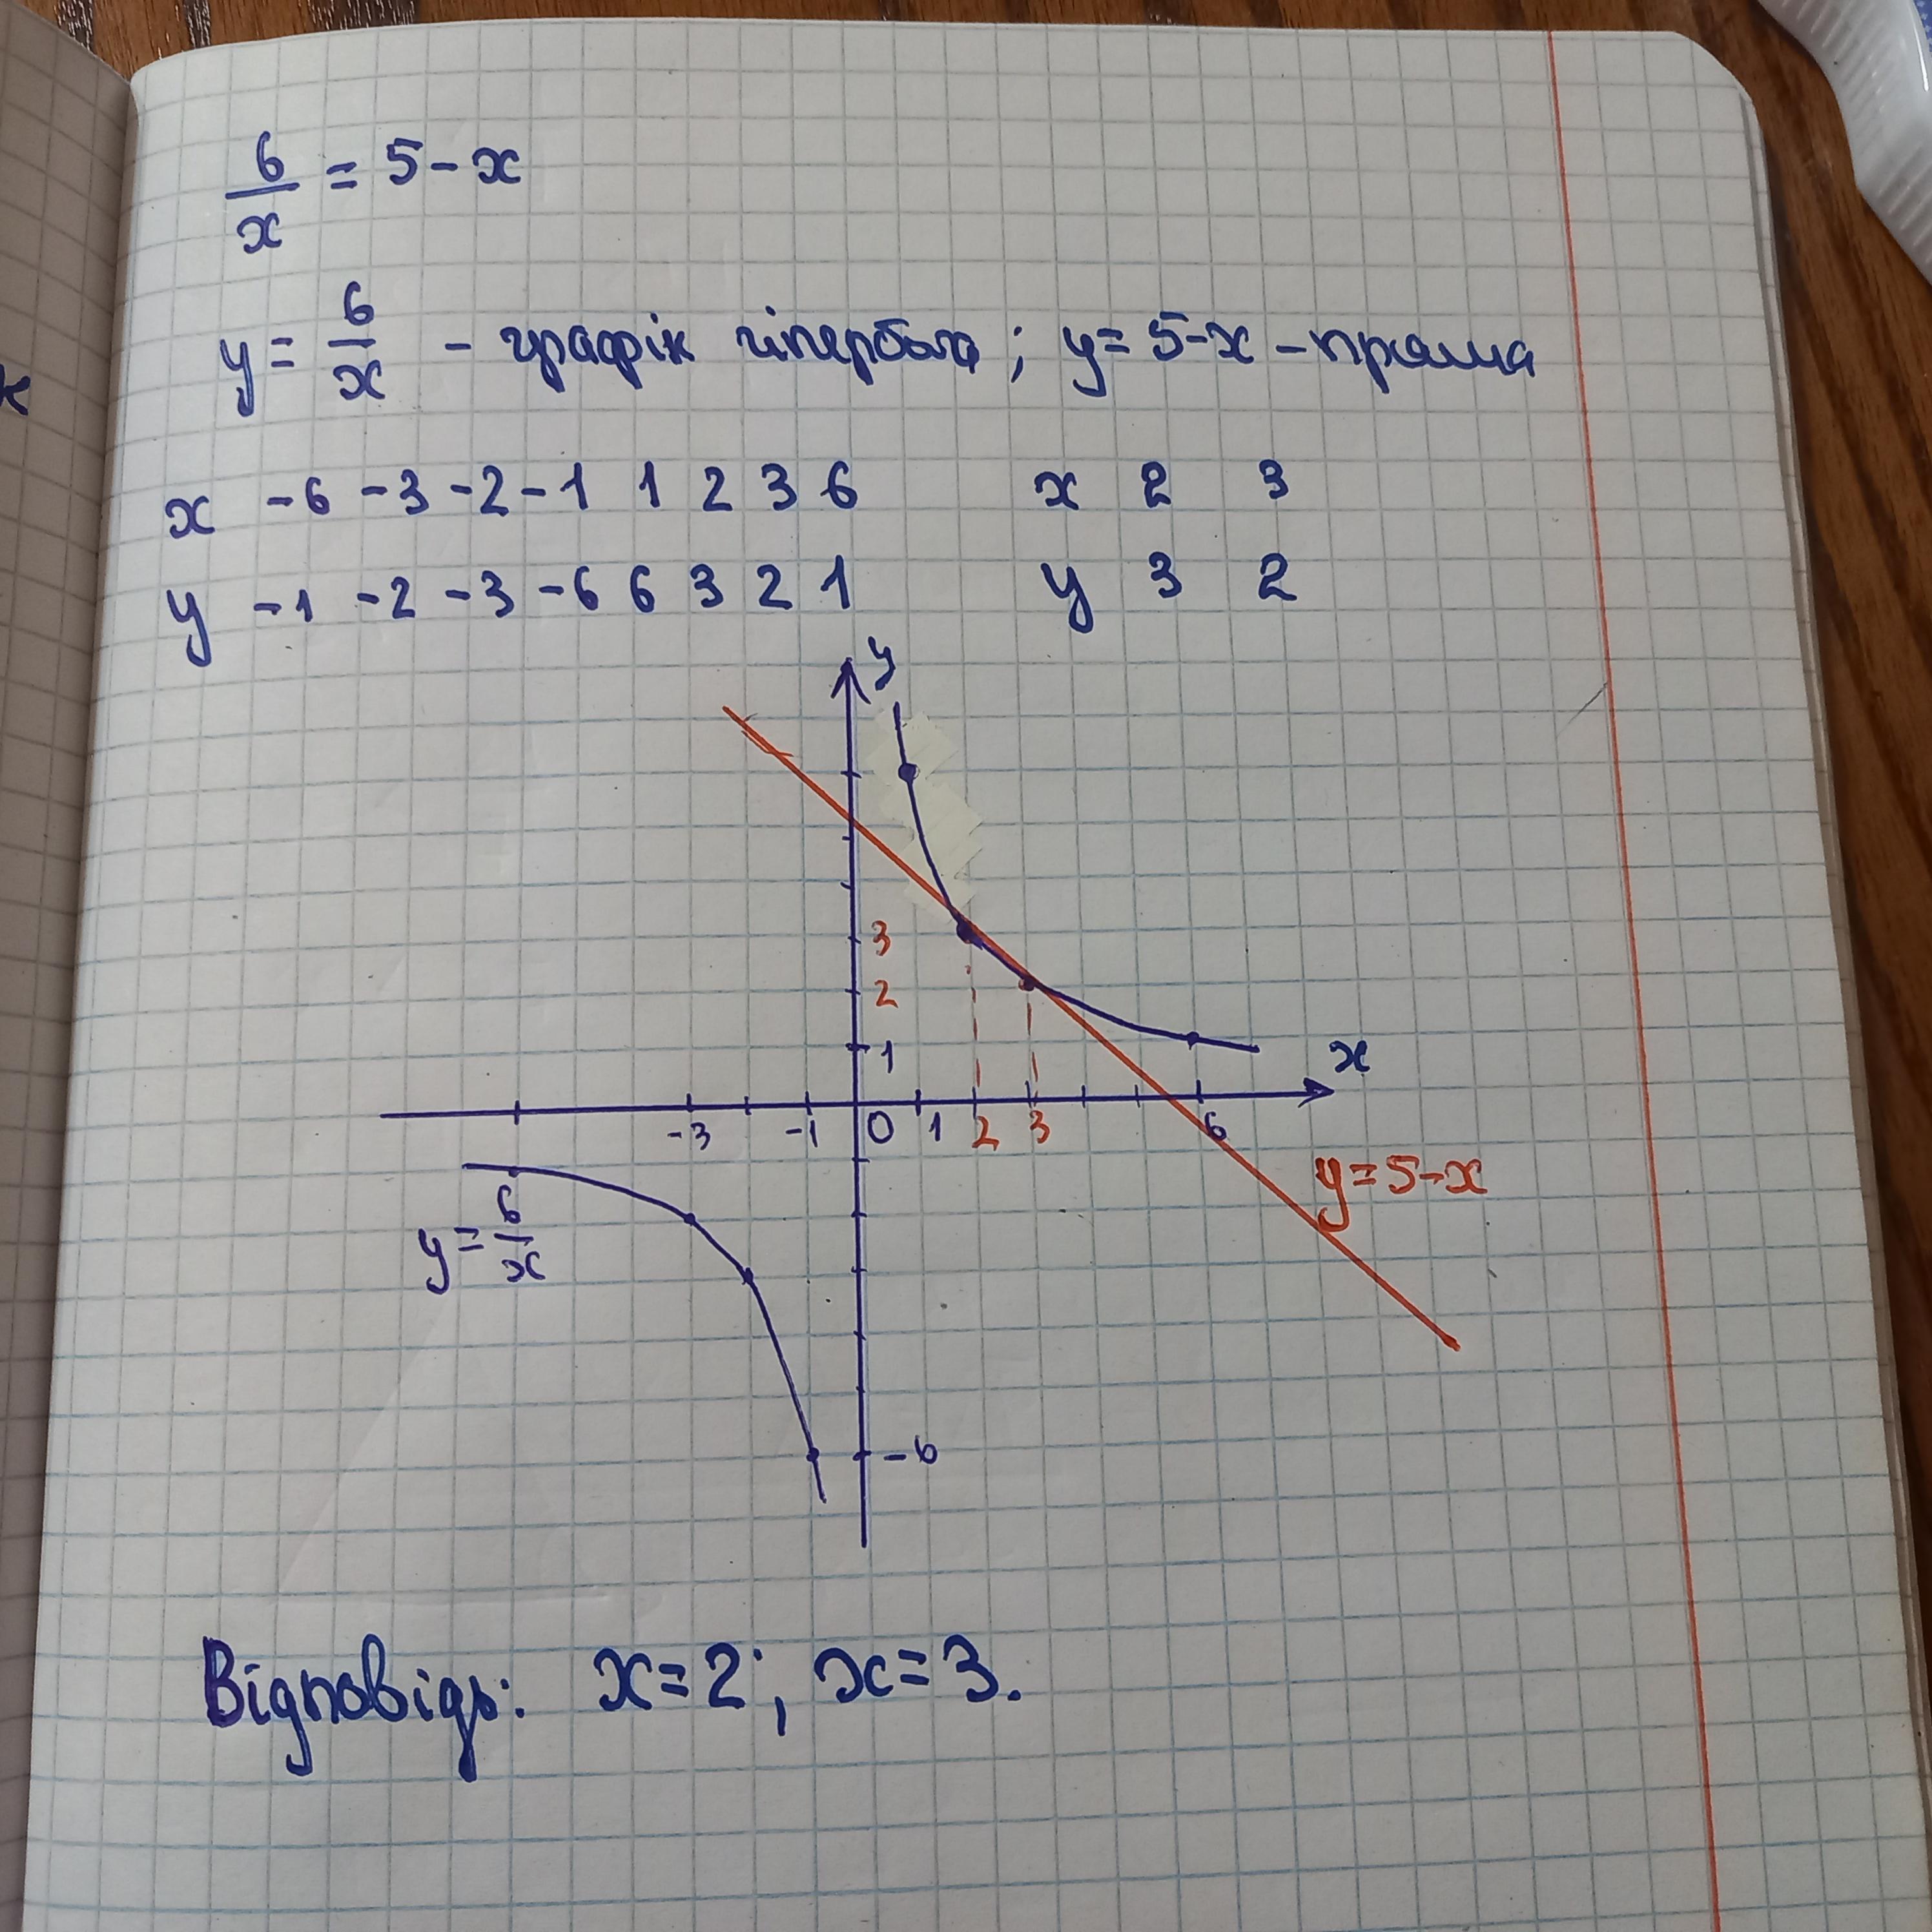 6/x = 5 - x
y = 6/x - графік гіпербола; y = 5-x - пряма
x -6 -3 -2 -1 1 2 3 6 x 2 3
y -1 -2 -3 -6 6 3 2 1 y 3 2
y
3
2
1
x
-3 -1 0 1 2 3 6
y=5-x
y = 6/x
-6
Відповідь: x=2; x=3.